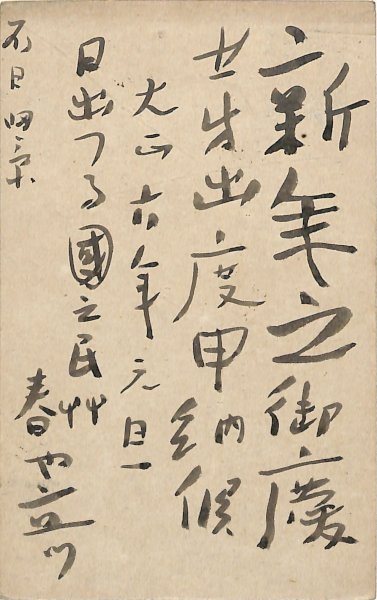 新年之御慶
芽出度申納候
大正六年元旦
日出つる國之民艸
春や立川
不日